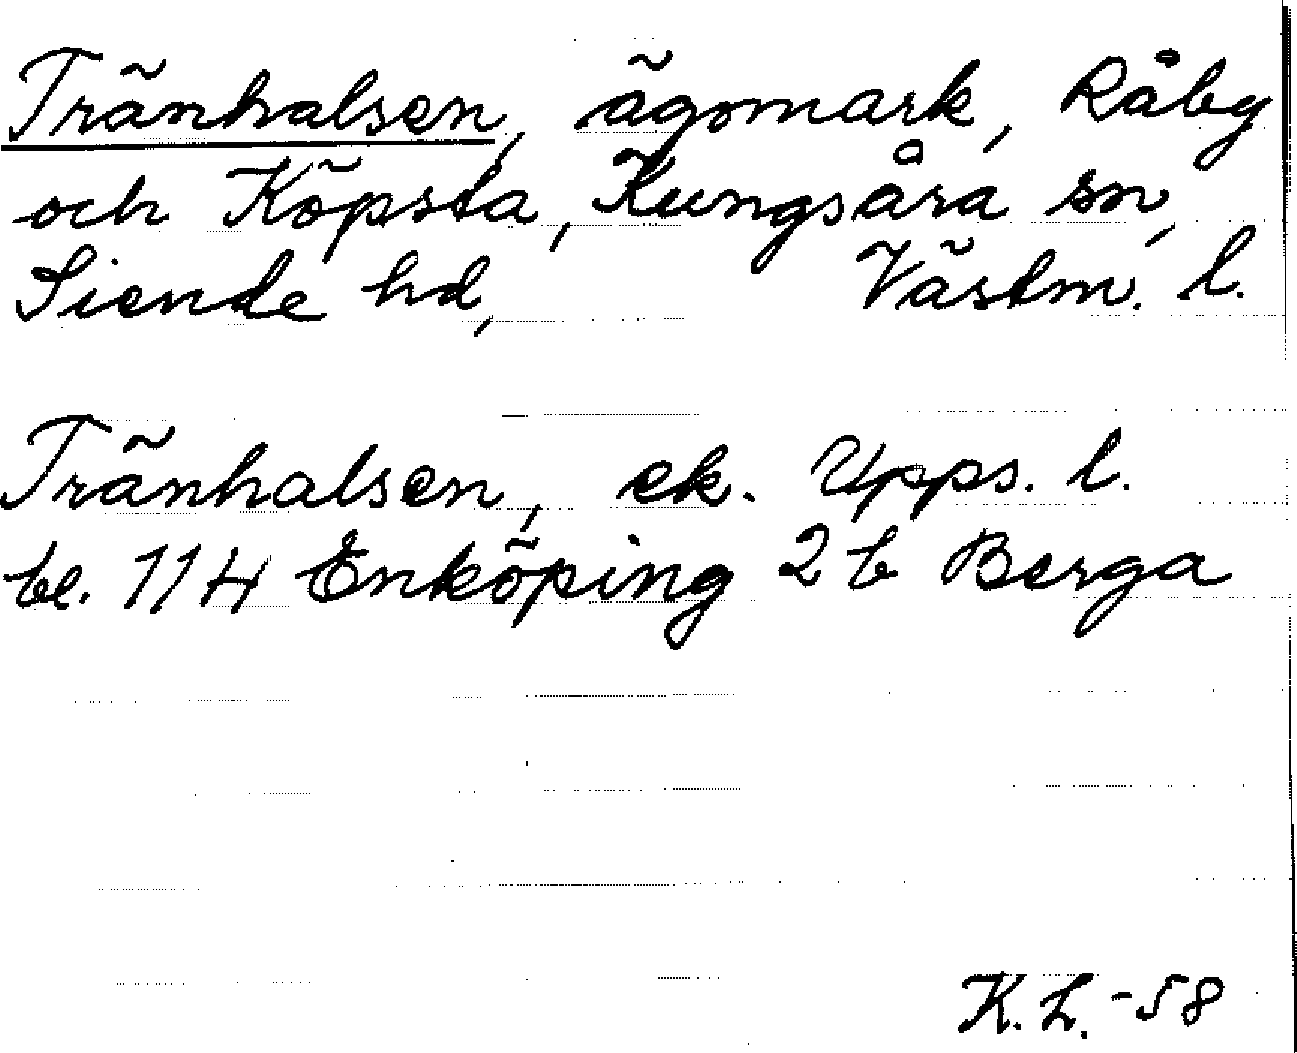 Tränhalsen, ägomark, Råby
och Köpsta, Kungsåra sn,
Siende hd, Västm. l.
Tränhalsen, ek. Upps. l.
bl. 114 Enköping 2 b Berga
K. L. -58